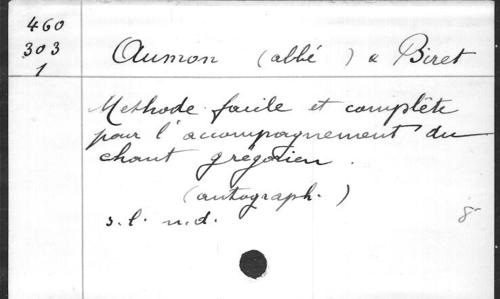 460
303
1
Aumon (abbé) & Biret
Methode facile et complète
pour l'accompagnement du
chant grégorien.
(autograph.)
s.l. n.d.
8°